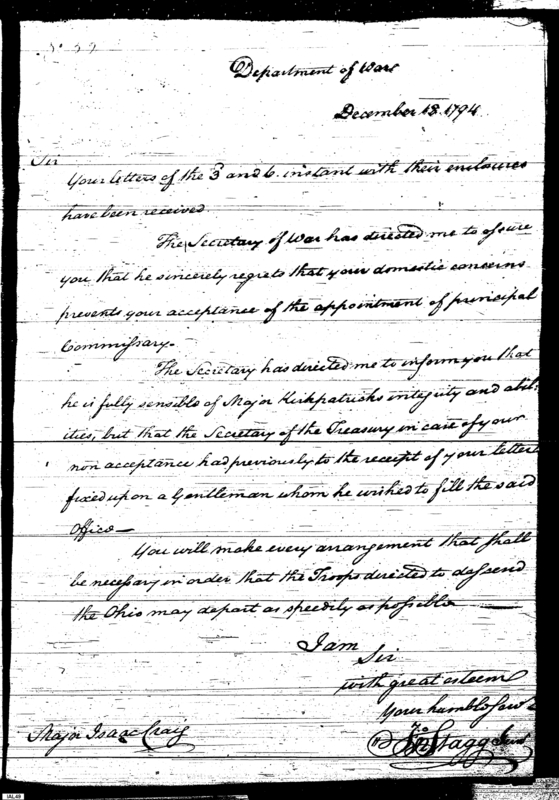 Department of War
December 18. 1794
Sir
Your letters of the 3d and 6. instant with their enclosures
have been received
The Secretary of War has directed me to assure
you that he sincerely regrets that your domestic concerns
prevents your acceptance of the appointment of principal
Commissary.
The Secretary has directed me to inform you that
he is fully sensible of Major Kirkpatricks integrity and abil-
ities, but that the Secretary of the Treasury in case of your
non acceptance had previously to the receipt of your letters
fixed upon a Gentleman whom he wished to fill the said
Office—
You will make every arrangement that shall
be necessary in order that the Troops directed to descend
the Ohio may depart as speedily as possible
I am
Sir
with great esteem
Your humble Servt
Jno Stagg Junr
Major Isaac Craig